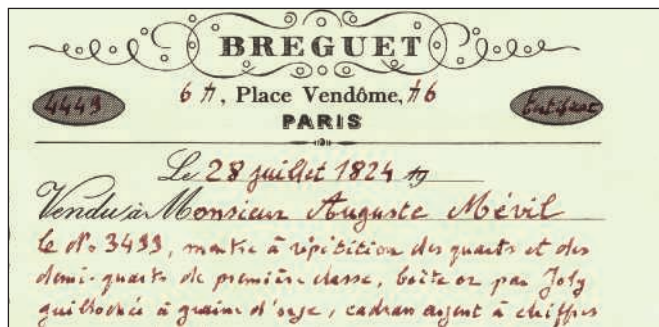 BREGUET
4449 6, Place Vendôme, 6 Certificat
PARIS
Le 28 juillet 1824
Vendu à Monsieur Auguste Mévil
le No 3433, montre à répétition des quarts et des
demi-quarts de première classe, boîte or par Joly
guillochée à grains d'orge, cadran argent à chiffres